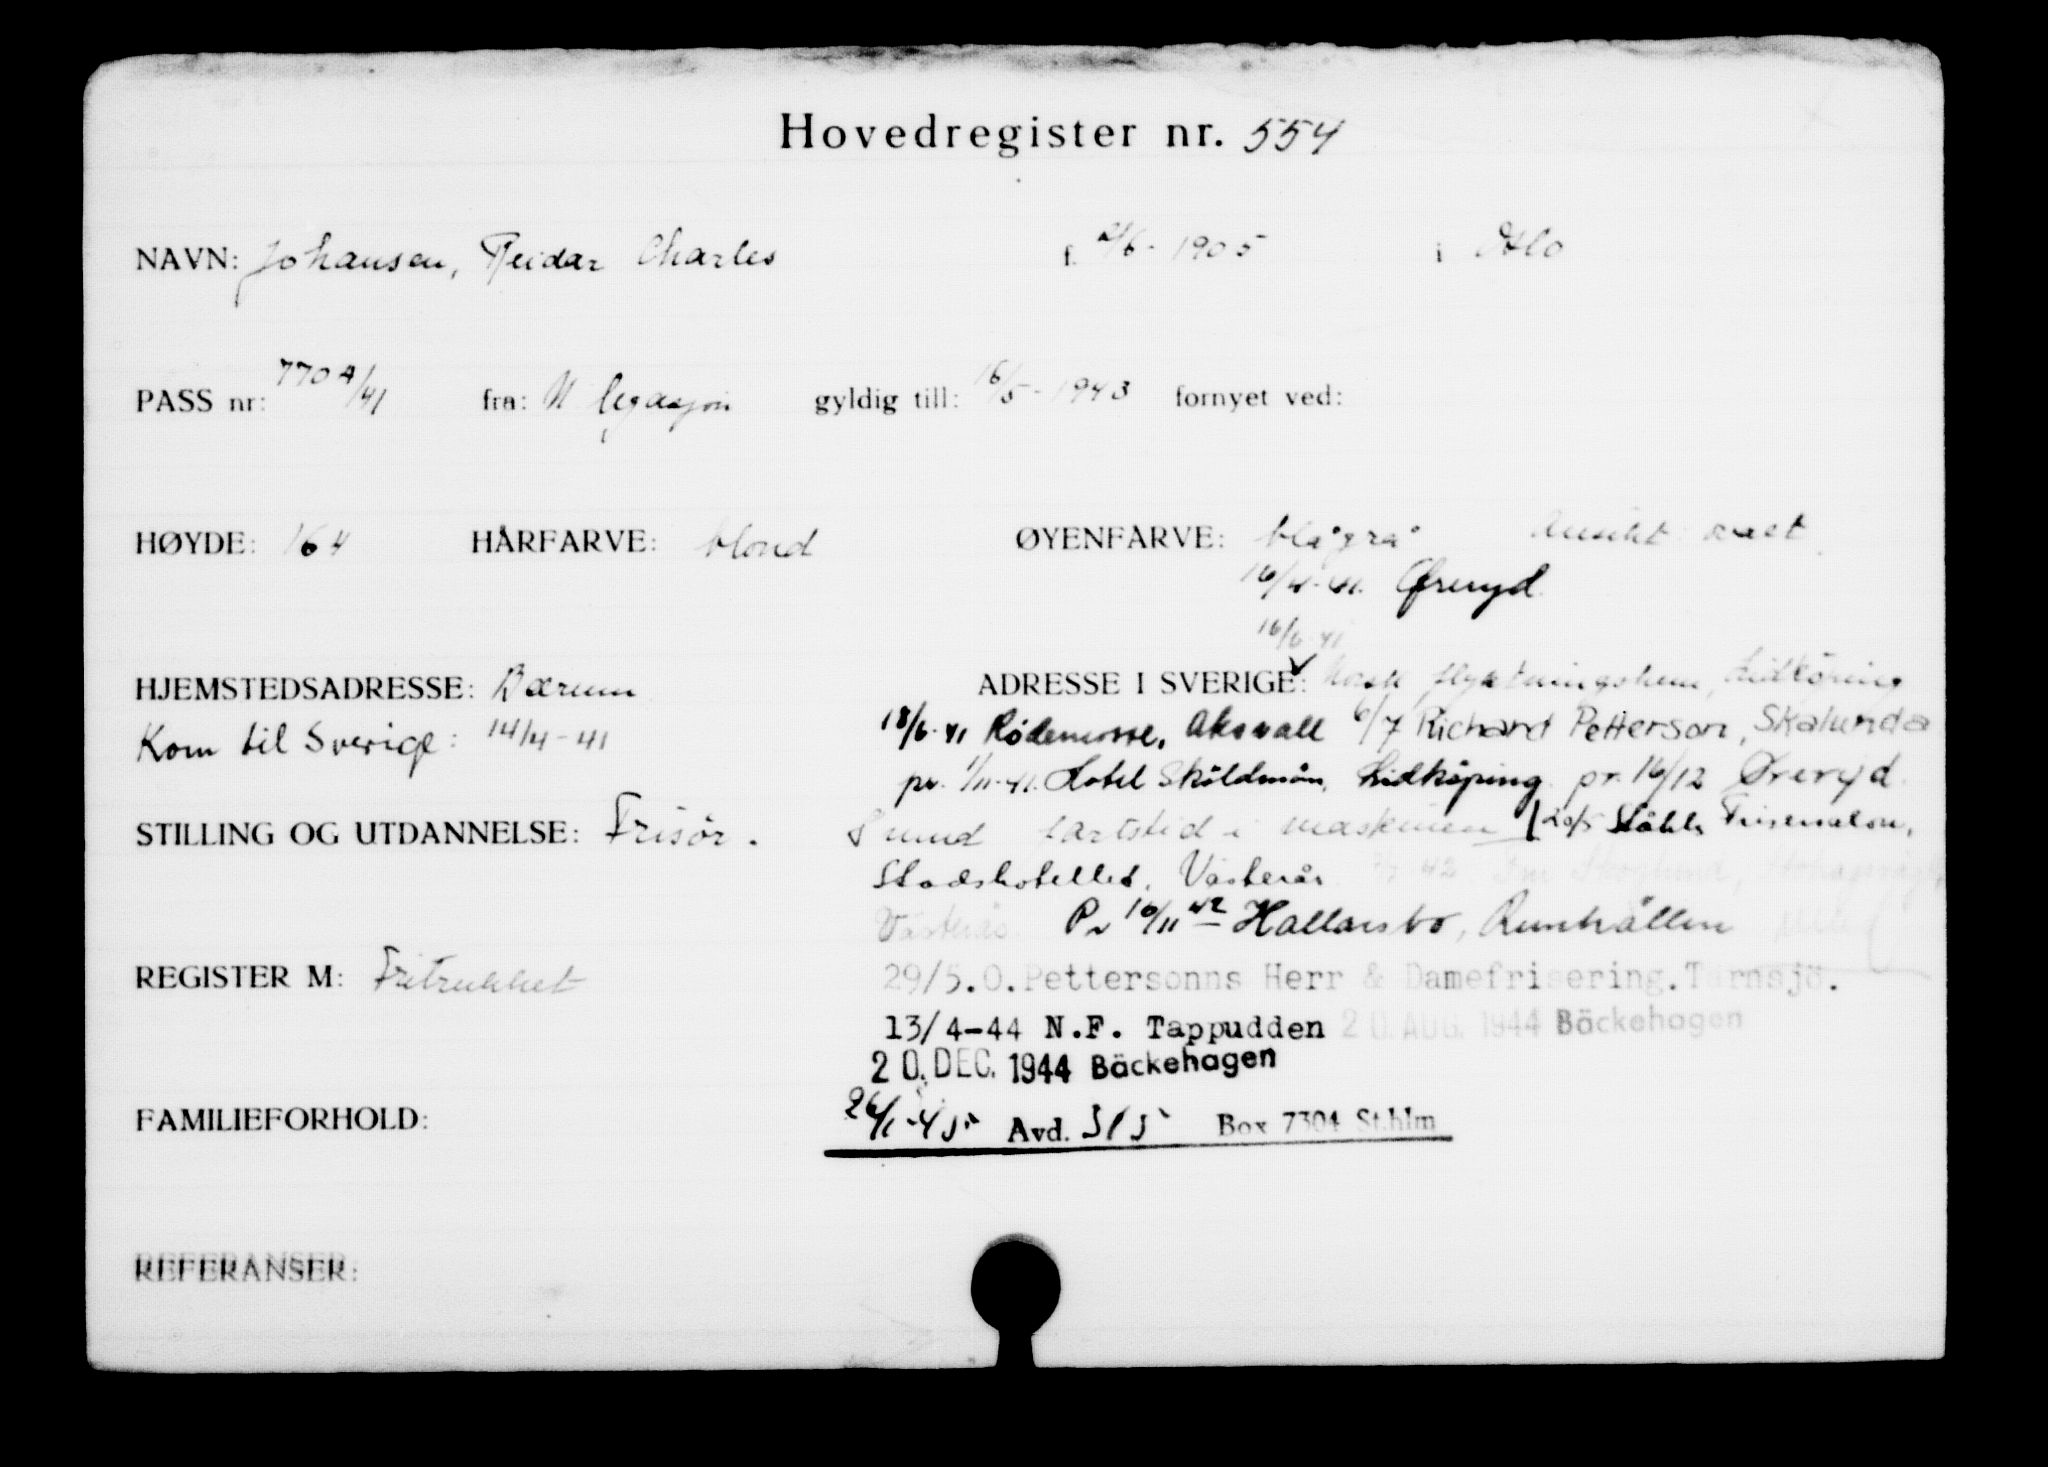 Hovedregister nr. 554
NAVN: Johansen, Reidar Charles f. 2/6-1905 i Oslo
PASS nr: 770A/41 fra: N legasjon gyldig till: 16/5-1943 fornyet ved:
HØYDE: 164 HÅRFARVE: blond ØYENFARVE: blågrå Ansikt: ovalt.
16/4-41. Øreryd.
16/6-41
HJEMSTEDSADRESSE: Bærum ADRESSE I SVERIGE: Norsk flyktningshem, Lidköping
Kom til Sverige: 14/4-41 18/6-41 Rödemosse, Aksvall 6/7 Richard Petterson, Skalunda
pr. 1/11-41. Hotel Sköldmön, Lidköping pr. 16/12 Øreryd.
STILLING OG UTDANNELSE: Frisör. fartstid i maskinen 20/5 Ståhls Frisersalon,
Stadshotellet, Västerås. 42
Västerås. Pr 16/11 42 Hallarsbo, Runhällen
REGISTER M: Fritrukket 29/5.O.Pettersonns Herr & Damefrisering.Tärnsjö.
13/4-44 N.F. Tappudden 20. AUG. 1944 Bäckehagen
20. DEC. 1944 Bäckehagen
FAMILIEFORHOLD: 26/1-45 Avd. 315 Box 7304 St.hlm
REFERANSER: